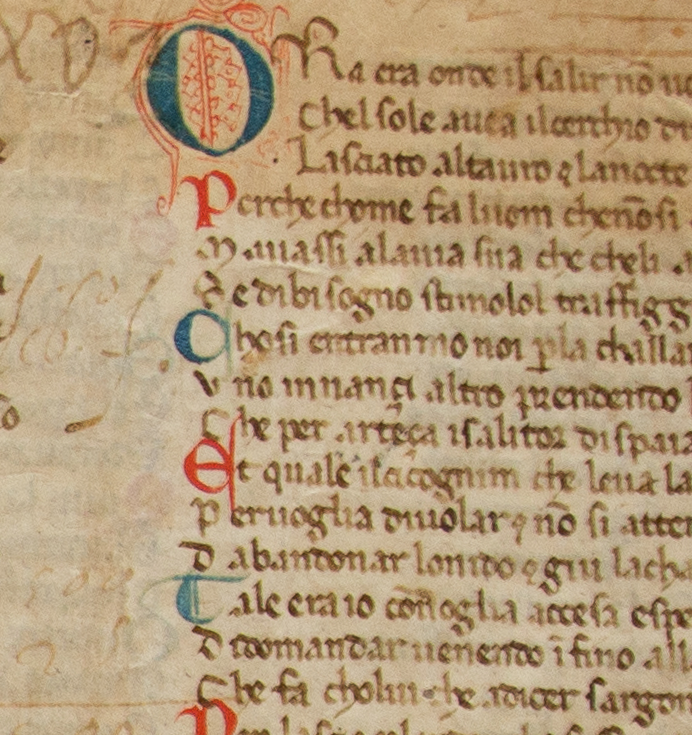 ORa era onde il salir nō uo
Chel sole auea il cerchio di
Lasciato al tauro ⁊ lanocte
Perche chome fa luom che nōsi
M auassi alauia sua che cheli a
Se dibisogno stimolol traffigg
Chosi entrammo noi ꝑla challa
V no innançi altro prendendo
Che per arteçça isalitor dispaia
Et quale ilcicognim che leua la
P er uoglia diuolar ⁊ nō si atte
D abandonar lonido ⁊ giu lacha
Tale era io cō uoglia accesa espe
D icomandar uenendo īfino all
Che fa cholui che adicer sargom